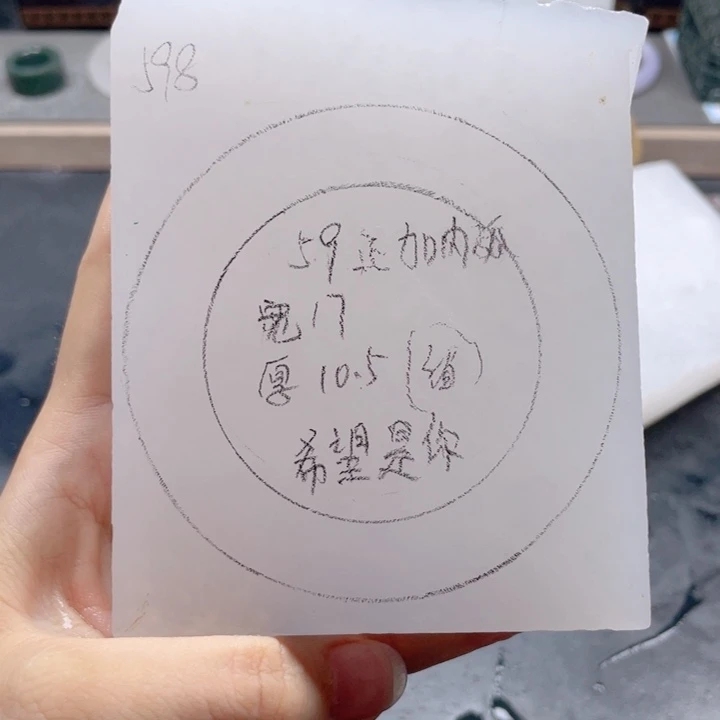 598
59正加内弧
宽17
厚10.5
希望是你